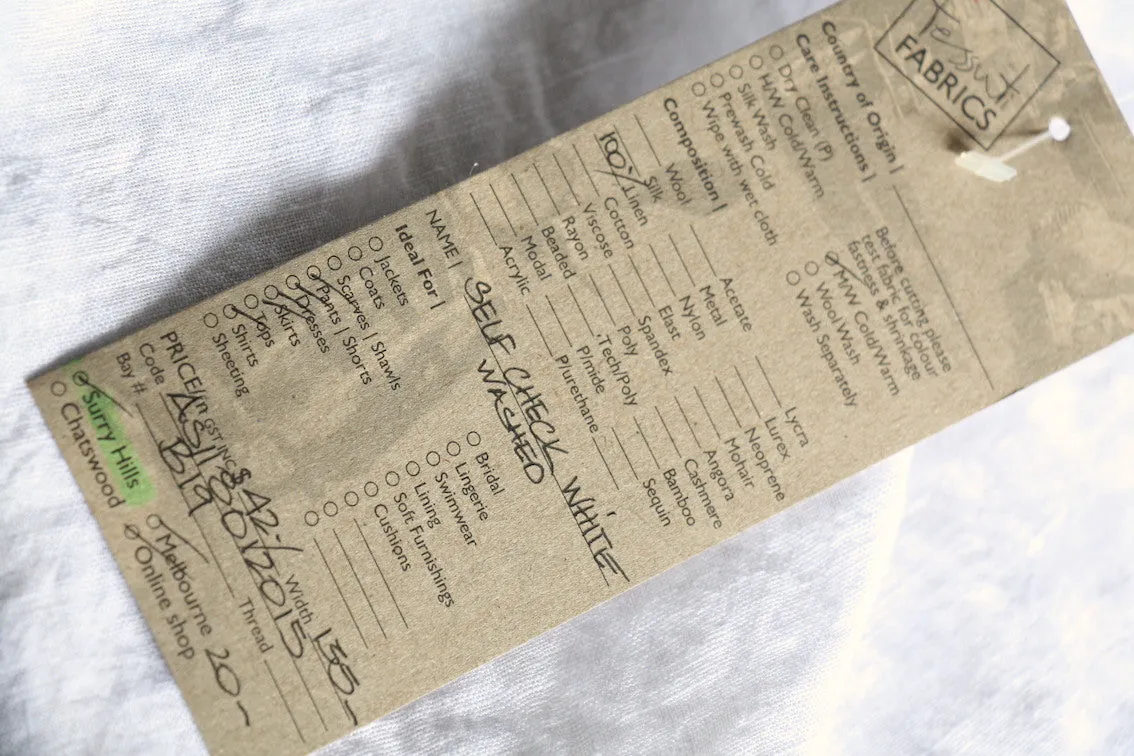 Tessuti
FABRICS
Country of Origin |
Care Instructions |
Dry Clean (P)
H/W Cold/Warm
Silk Wash
Prewash Cold
Wipe with wet cloth
Before cutting please
test fabric for colour
fastness & shrinkage
M/W Cold/Warm
Wool Wash
Wash Separately
Composition |
Wool
Silk
100% Linen
Cotton
Viscose
Rayon
Beaded
Modal
Acrylic
Acetate
Metal
Nylon
Elast
Spandex
Poly
Tech/Poly
P/mide
P/urethane
Lycra
Lurex
Neoprene
Mohair
Angora
Cashmere
Bamboo
Sequin
NAME | SELF CHECK WHITE
WASHED
Ideal For |
Jackets
Coats
Scarves | Shawls
Pants | Shorts
Dresses
Skirts
Tops
Shirts
Sheeting
Bridal
Lingerie
Swimwear
Lining
Soft Furnishings
Cushions
PRICE/m GST INC $42- Width 135
Code
Bay # B19 Thread
Surry Hills
Chatswood
Melbourne 20
Online shop